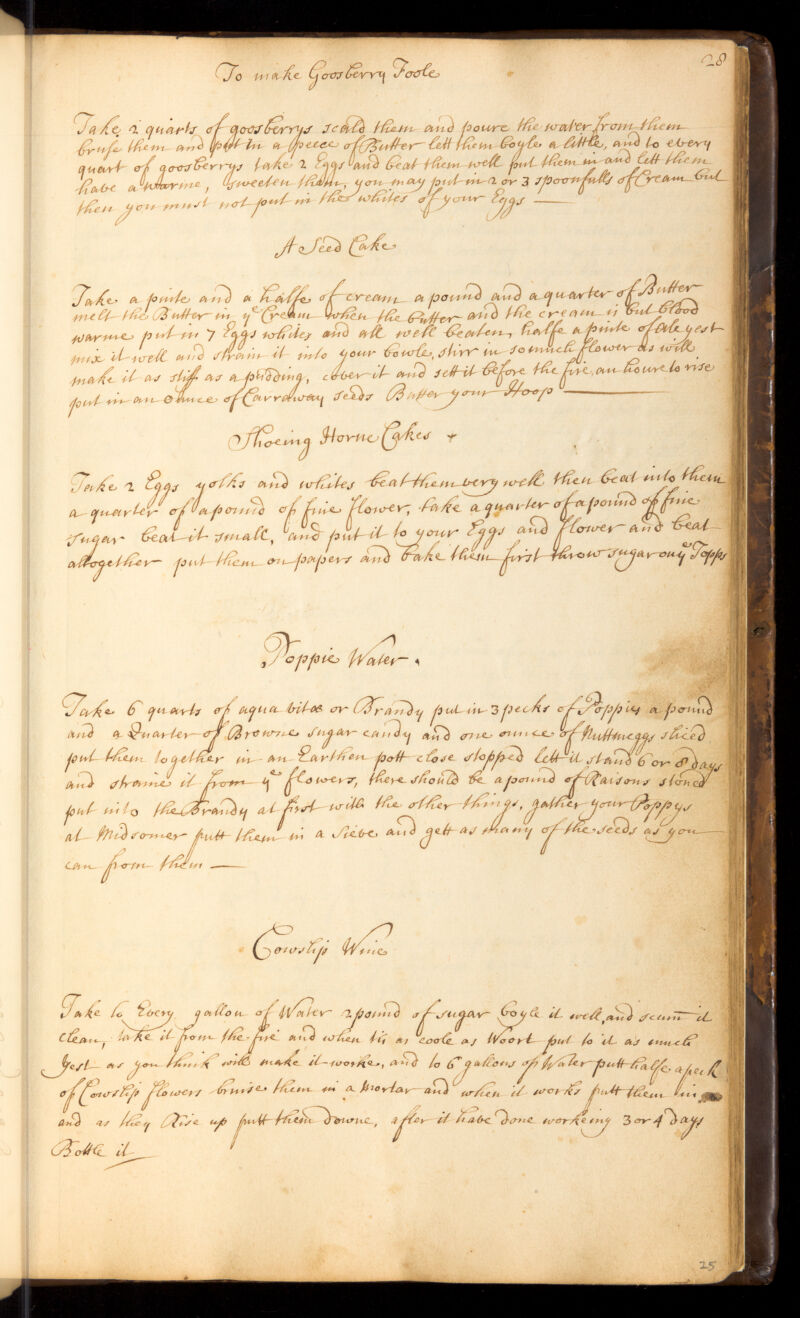 28
To make Goosberry Foole
Take 2 quarts of goosberrys scald them and poure the water from them
bruse them and putt in a peece of Butter lett them boyle a little, and to every
quart of goosberrys take 2 Eggs and beat them well put them in and lett them
have a warme, sweeten them, you may put in 2 or 3 spoonfulls of Cream but
then you must not put in the whites of your Eggs
A Seed Cake
Take a pinte and a halfe of cream a pound and a quarter of Butter
melt the Butter in ye Cream when the butter and the cream is but blood
warme put in 7 Eggs whites and all well beaten, halfe a pinte of Ale yest
mix it well and strain it into your bowle, stirr in so much flower as will
make it as stiff as a pudding, cover it and sett it before the fire, an houre to rise
put in an Ounce of Carraway seeds Butter your Hoop
Shoeing Horne Cakes
Take 2 Eggs yolks and whites beat them very well then beat into them
a quarter of a pound of fine flower, take a quarter of a pound of fine
sugar beat it small, and put it to your Eggs and flower and beat
altogether put them on papers and bake them first throw sugar on ye Topps
Poppie Water
Take 6 quarts of aqua vitae or Brandy put in 3 pecks of Poppies a pound
and a Quarter of Browne sugar candy and one ounce of Nuttmeggs sliced
put them together in an Earthen pott close stopped lett it stand 6 or 8 days
and straine it from ye flowers, there should be a pound of Raisons stoned
put into the Brandy at first with the other things, gather your Poppys
at Midsomer putt them in a Sieve and gett as many of the seeds as you
can from them
Cowslip Wine
Take to Every gallon of Water 2 pound of sugar boyle it well, and scum it
clean, take it from the fire and when tis as coole as Woort put to it as much
Yest as you think will make it worke, and to 6 gallons of Water putt halfe a peck
of Cowslip flowers bruise them in a Mortar and when it works putt them in
and as they Rise up putt them downe, after it have done workeing 3 or 4 days
Bottle it
25